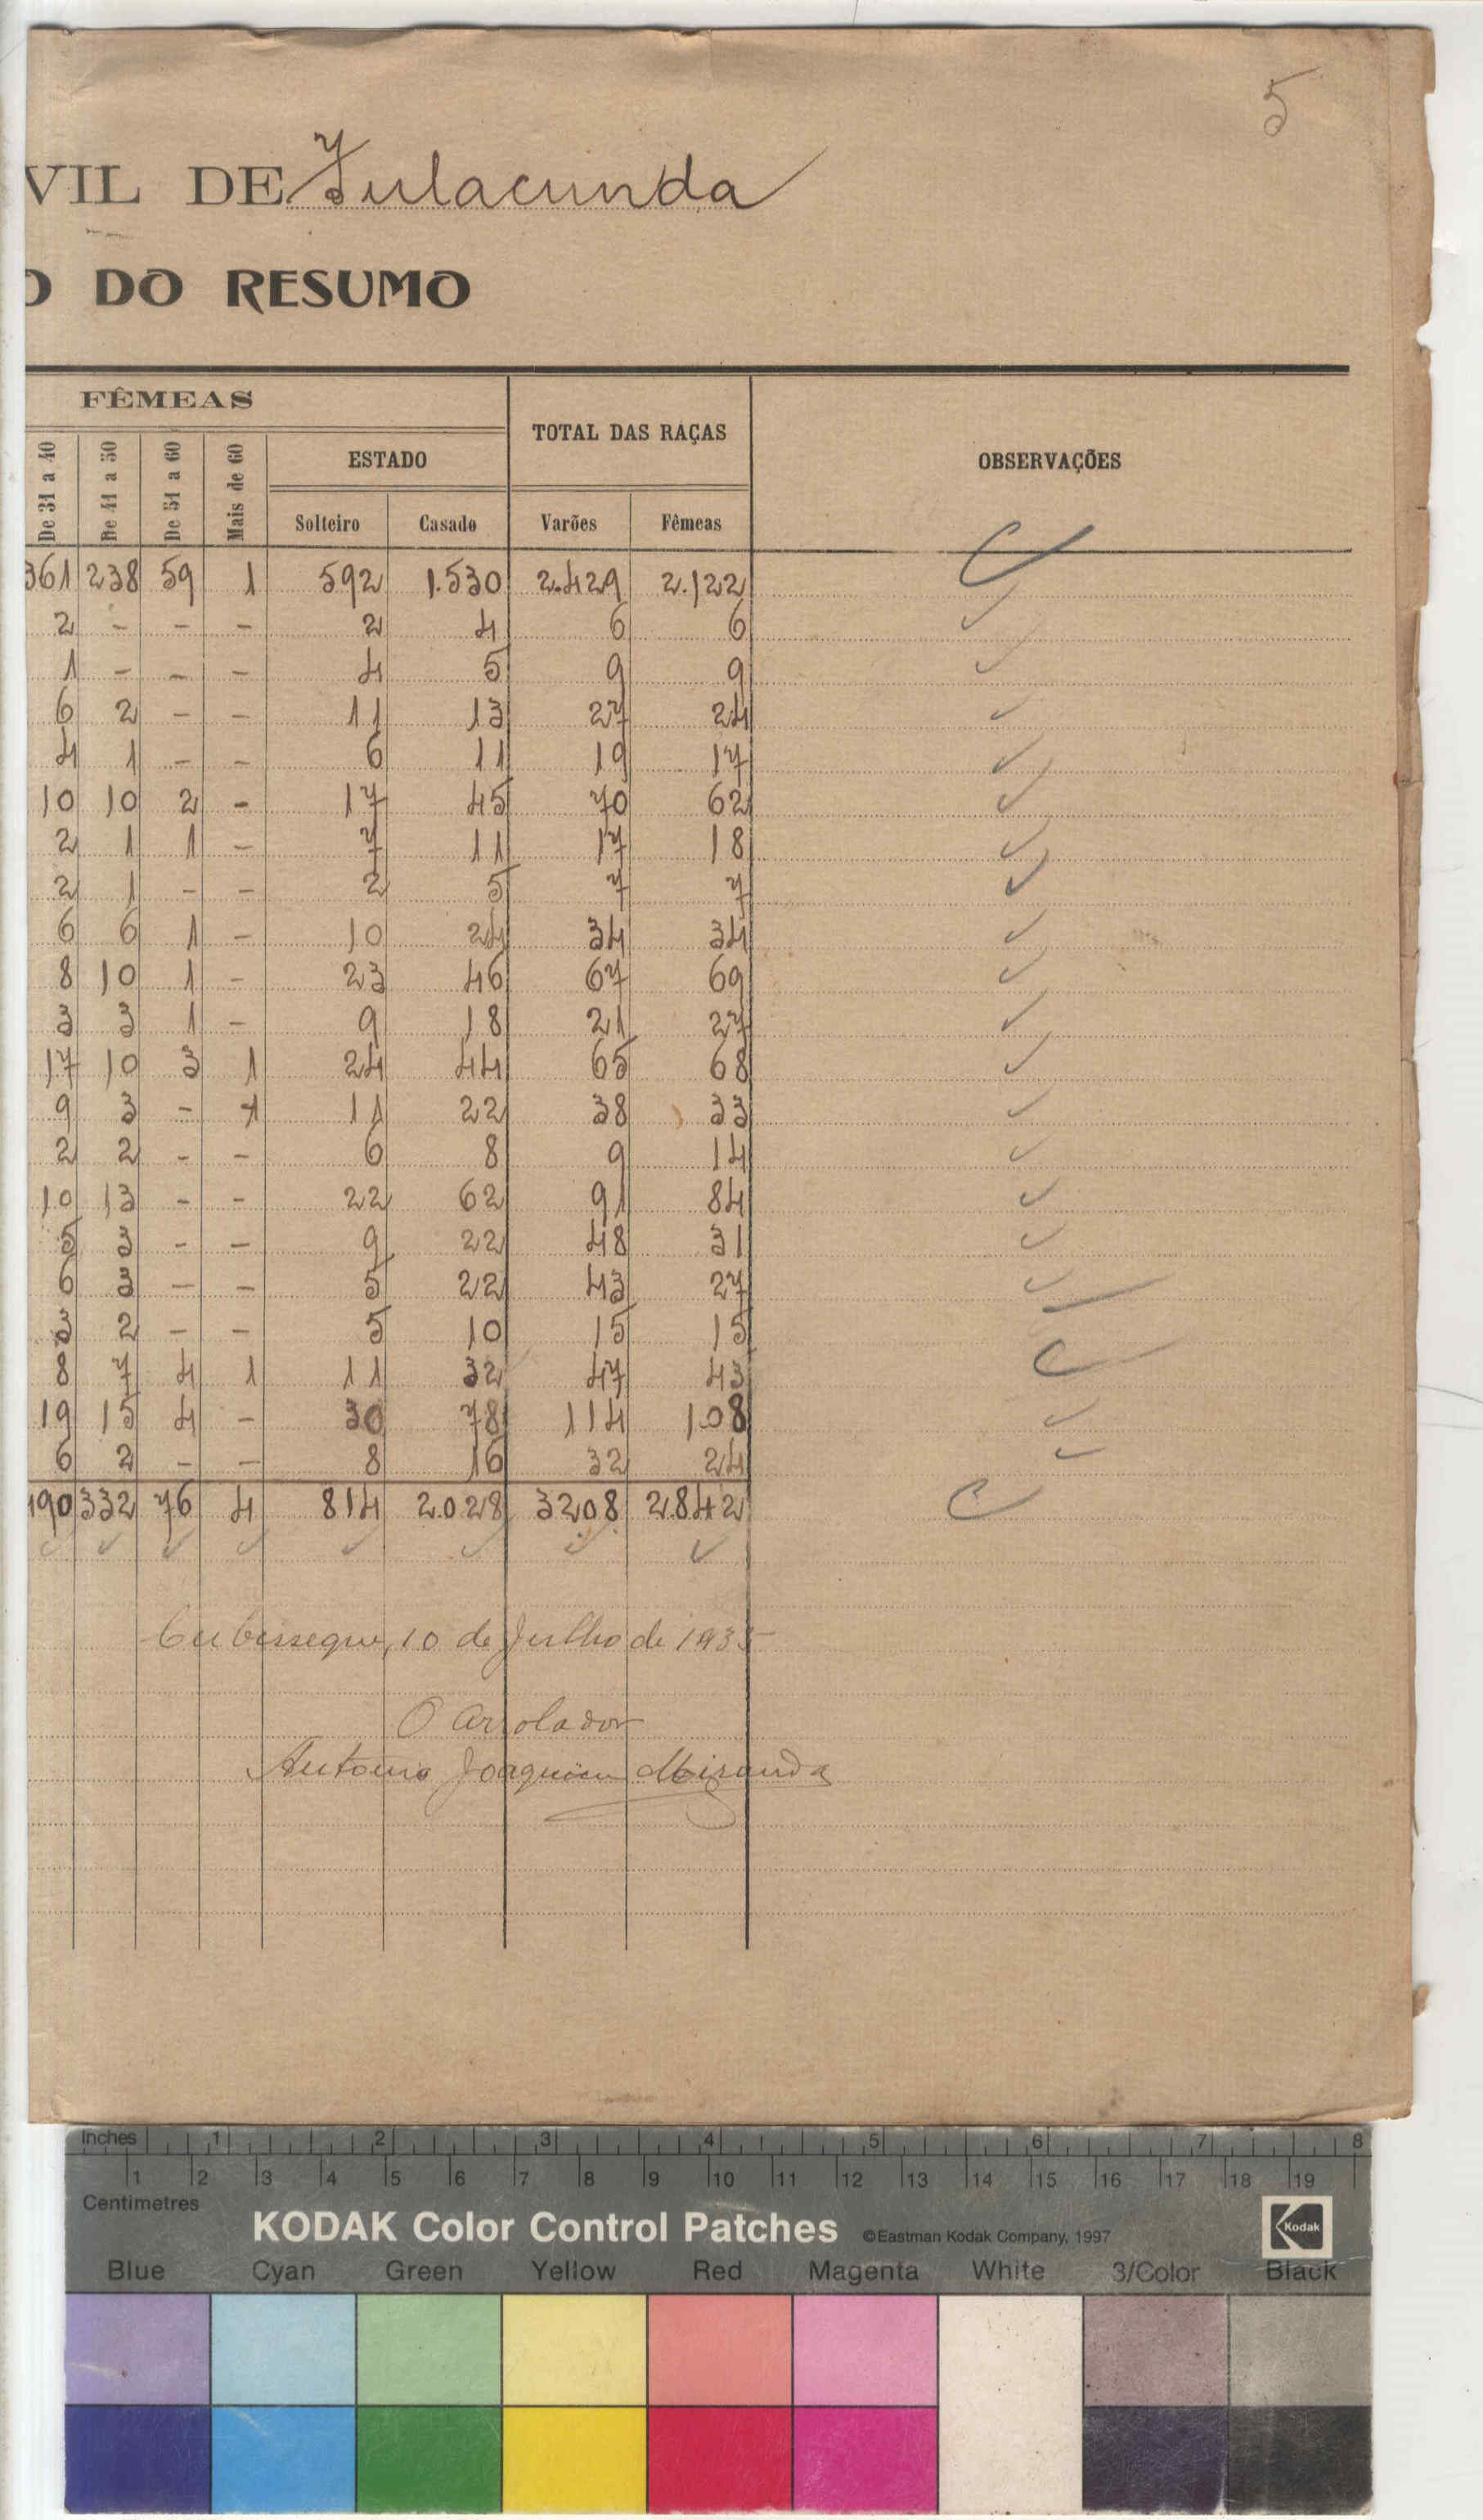 5
VIL DE Fulacunda
O DO RESUMO
FÊMEAS
TOTAL DAS RAÇAS
OBSERVAÇÕES
De 31 a 40 De 41 a 50 De 51 a 60 Mais de 60
ESTADO
Solteiro Casado Varões Fêmeas
361 238 59 1 592 1.530 2.429 2.122
2 - - - 2 4 6 6
1 - - - 4 5 9 9
6 2 - - 11 13 27 24
4 1 - - 6 11 19 17
10 10 2 - 17 45 70 62
2 1 1 - 7 11 17 18
2 1 - - 2 5 7 7
6 6 1 - 10 24 34 34
8 10 1 - 23 46 67 69
3 3 1 - 9 18 21 27
17 10 3 1 24 44 65 68
9 3 - 1 11 22 38 33
2 2 - - 6 8 9 14
10 13 - - 22 62 91 84
5 3 - - 9 22 48 31
6 3 - - 5 22 43 27
3 2 - - 5 10 15 15
8 7 4 1 11 32 47 43
19 15 4 - 30 78 114 108
6 2 - - 8 16 32 24
490 332 76 4 814 2.028 3208 2.842
10 de Julho de 1935
O Arrolador
Antonio Joaquim Miranda
Inches 1 2 3 4 5 6 7 8
1 2 3 4 5 6 7 8 9 10 11 12 13 14 15 16 17 18 19
Centimetres
KODAK Color Control Patches ©Eastman Kodak Company, 1997 Kodak
Blue Cyan Green Yellow Red Magenta White 3/Color Black